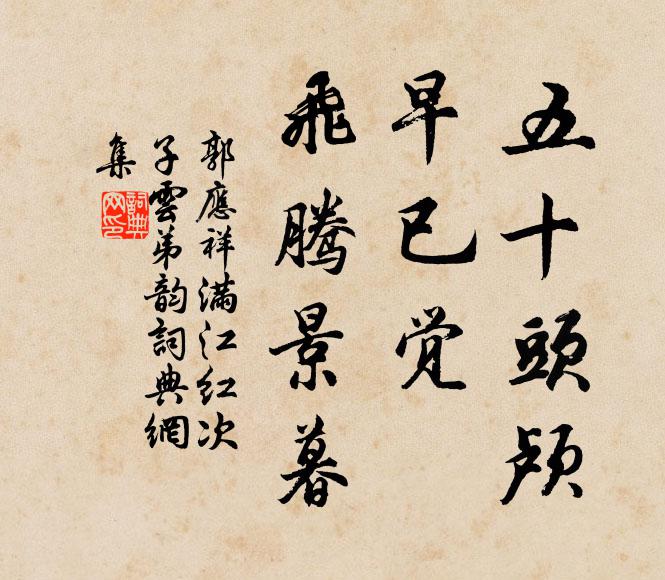 五十頭颅
早已觉
飛腾景暮
郭應祥滿江红次
子雲弟韵詞典網
集
詞典
网印